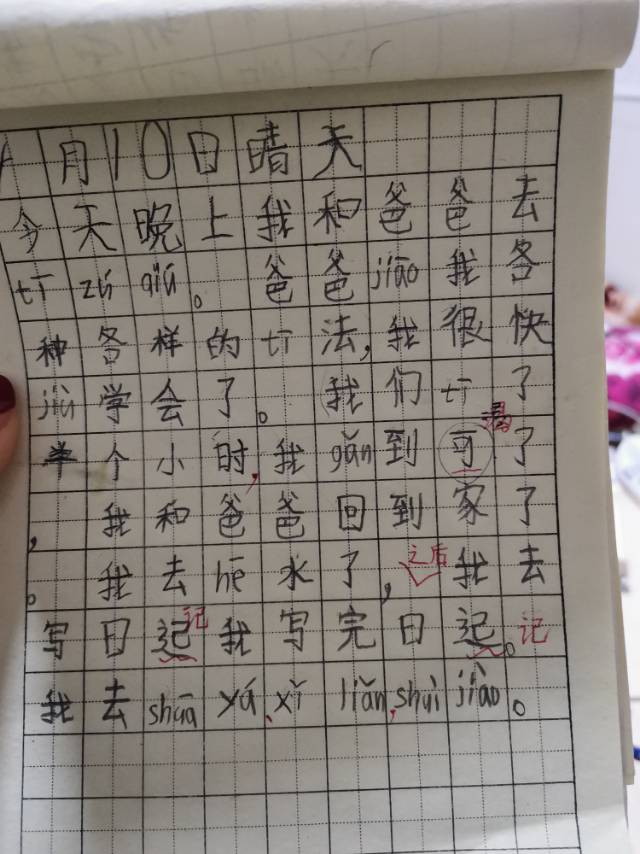 月10日晴天
今天晚上我和爸爸去
tī zú qiú。爸爸jiāo我各
种各样的tī法,我很快
jiù学会了。我们tī了
半个小时,我gǎn到可渴了
,我和爸爸回到家了
。我去hē水了,之后我去
写日起记我写完日起。记
我去shuā yá、xǐ liǎn、shuì jiào。